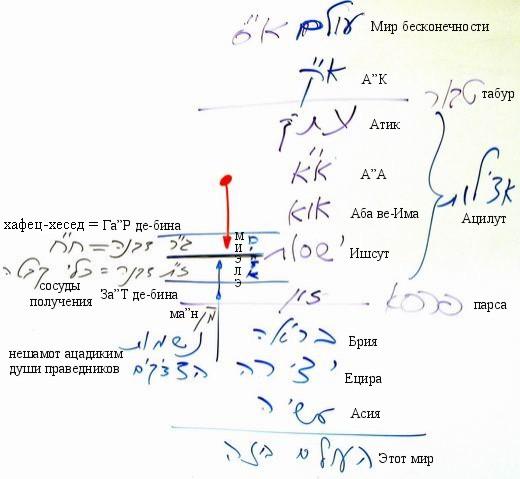 עולם א"ס Мир бесконечности
א"ק А"К
טבור табур
עתיק Атик
א"א А"А
אצילות
או"א Аба ве-Има
Ацилут
хафец-хесед = Га"Р де-бина
ג"ר דבינה = ח"ח
М
И
Э
Л
Э
ישסו"ת Ишсут
ז"ת דבינה = כלי קבלה
сосуды
получения
За"Т де-бина
זו"ן
פרסא парса
ма"н מ"ן
нешамот ацадиким נשמות
души праведников הצדיקים
בריאה Брия
יצירה Ецира
עשיה Асия
העולם הזה Этот мир